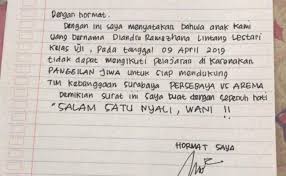 Dengan hormat.
Dengan ini saya menyatakan bahwa anak kami
yang bernama Diandra Ramezhana Lintang Lestari
Kelas VII, Pada tanggal 09 April 2019
tidak dapat mengikuti pelajaran di karenakan
PANGGILAN JIWA untuk siap mendukung
TIM Kebanggaan Surabaya PERSEBAYA VS AREMA
Demikian surat ini saya buat dengan sepenuh hati
"SALAM SATU NYALI, WANI !!
HORMAT SAYA